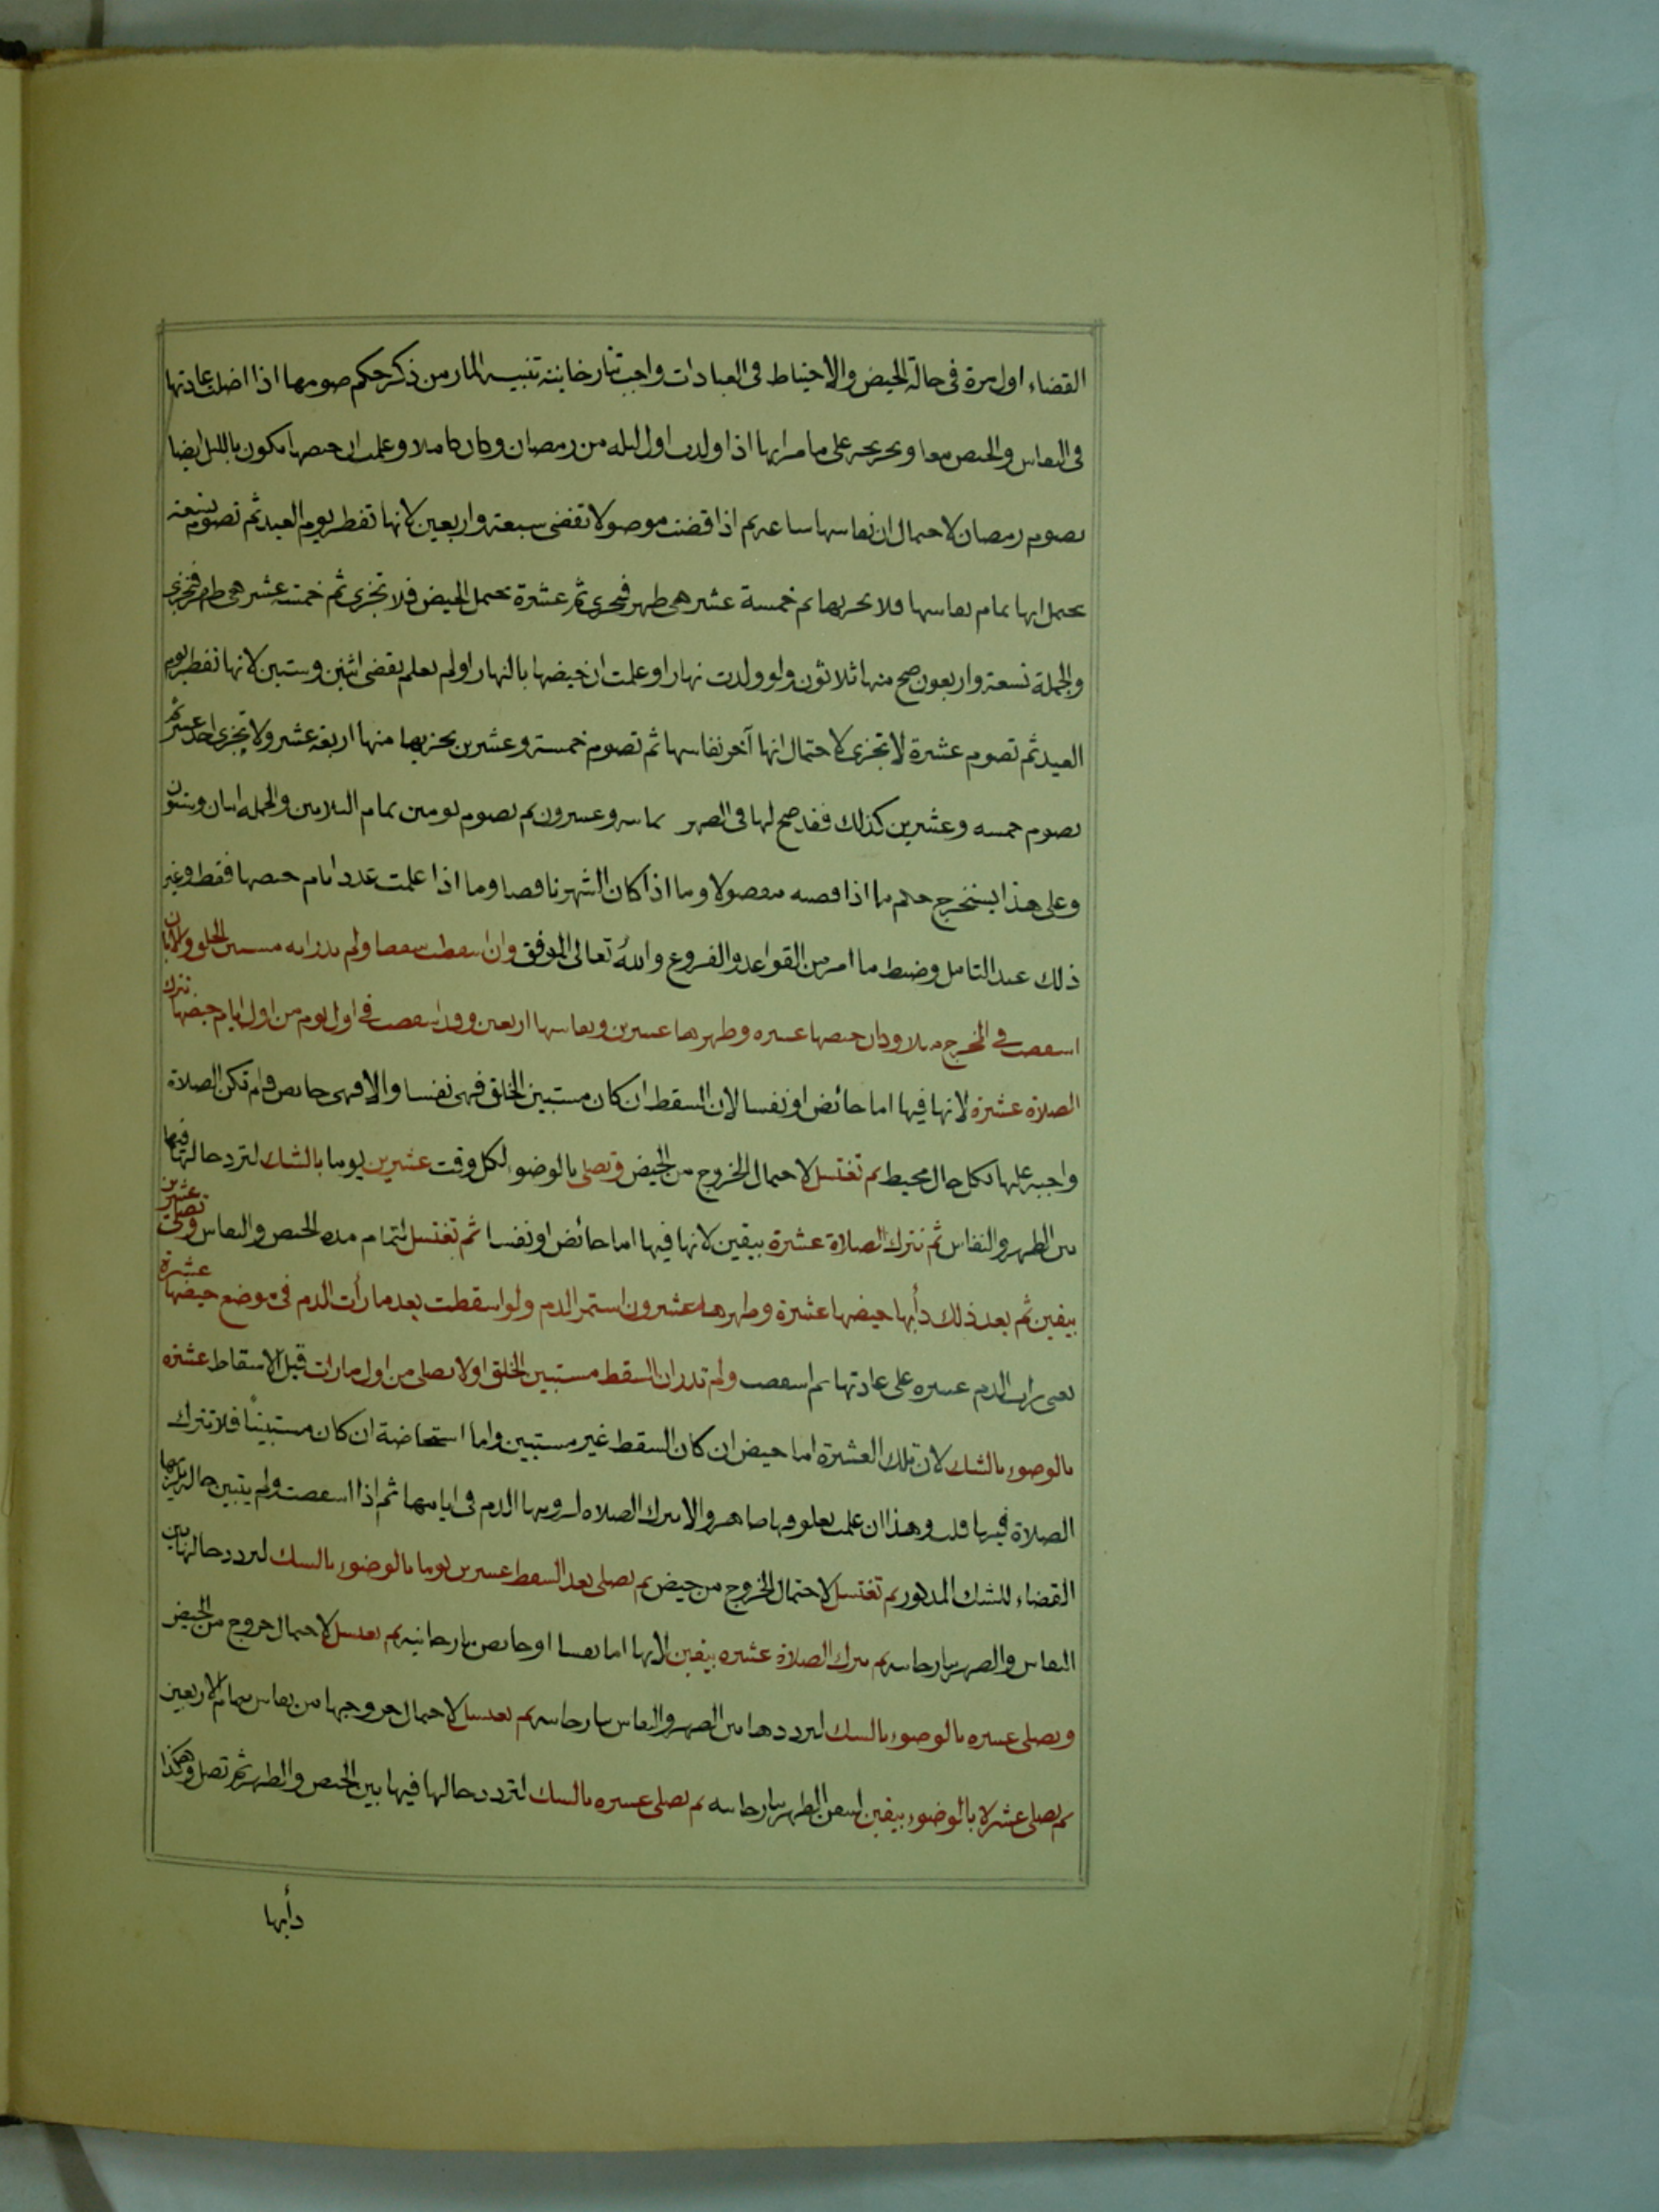 القضاء اول مرة فى حالة الحيض والاحتياط فى العبادات واجب تتارخانية تنبيه المار من ذكر حكم صومها اذا اضلت عادتها
فى النفاس والحيض معا وتخريجه على ما مر انها اذا ولدت اول ليله من رمضان وكان كاملا وعلمت ان حيضها يكون بالليل ايضا
تصوم رمضان لاحتمال ان نفاسها ساعه ثم اذا قضت موصولا تقضى سبعة واربعين لانها تفطر يوم العيد ثم تصوم تسعة
يحتمل انها تمام نفاسها فلا تجزيها ثم خمسة عشر هى طهر فتجزى ثم عشرة تحتمل الحيض فلا تجزى ثم خمسة عشر هى طهر فتجزى
والجملة تسعة واربعون صح منها ثلاثون ولو ولدت نهارا وعلمت ان حيضها بالنهار او لم تعلم تقضى اثنين وستين لانها تفطر يوم
العيد ثم تصوم عشرة لا تجزى لاحتمال انها آخر نفاسها ثم تصوم خمسة وعشرين يجزيها منها اربعة عشر ولا تجزى احد عشر ثم
تصوم خمسه وعشرين كذلك فقد صح لها فى الطهر ثمانيه وعشرون ثم تصوم يومين تمام الثلاثين والجمله اثنان وستون
وعلى هذا يستخرج حكم ما اذا قضته مفصولا وما اذا كان الشهر ناقصا وما اذا علمت عدد ايام حيضها فقط وغير
ذلك عند التامل وضبط ما امر من القواعد والفروع والله تعالى الموفق وان اسقطت سقطا ولم تدر انه مستبين الخلق ولا بان
اسقطت فى المخرج مثلا وكان حيضها عشره وطهرها عشرين ونفاسها اربعين وقد اسقطت فى اول يوم من اول ايام حيضها تترك
الصلاة عشرة لانها فيها اما حائض او نفسا لان السقط ان كان مستبين الخلق فهى نفسا والا فهى حائض فلم تكن الصلاة
واجبه عليها بكل حال محيط ثم تغتسل لاحتمال الخروج من الحيض وتصلى بالوضوء لكل وقت عشرين يوما بالشك لتردد حالها فيها
بين الطهر والنفاس ثم تترك الصلاة عشرة بيقين لانها فيها اما حائض او نفسا ثم تغتسل لتمام مده الحيض والنفاس وتصلى عشرين
بيقين ثم بعد ذلك دأبها حيضها عشرة وطهرها عشرون استمر الدم ولو اسقطت بعد ما رأت الدم فى موضع حيضها عشرة
يعنى رات الدم عشره على عادتها ثم اسقطت ولم تدر ان السقط مستبين الخلق او لا تصلى من اول ما رات قبل الاسقاط عشره
بالوضوء بالشك لان تلك العشرة اما حيض ان كان السقط غير مستبين واما استحاضة ان كان مستبينًا فلا تترك
الصلاة فيها قلت وهذا ان علمت بعلوقها ظاهر والا تترك الصلاه لرويتها الدم فى ايامها ثم اذا اسقطت ولم يتبين حاله يلزمها
القضاء للشك المذكور ثم تغتسل لاحتمال الخروج من حيض ثم تصلى بعد السقط عشرين يوما بالوضوء بالشك لتردد حالها بين
النفاس والطهر تتارخانيه ثم تترك الصلاة عشره بيقين لانها اما نفسا او حائض تتارخانيه ثم تغتسل لاحتمال خروج من الحيض
وتصلى عشره بالوضوء بالشك لترددها بين الطهر والنفاس تتارخانيه ثم تغتسل لاحتمال خروجها من نفاس بتمام الاربعين
ثم تصلى عشرة بالوضوء بيقين لتيقن الطهر تتارخانيه ثم تصلى عشره بالشك لتردد حالها فيها بين الحيض والطهر ثم تصل وهكذا
دأبها